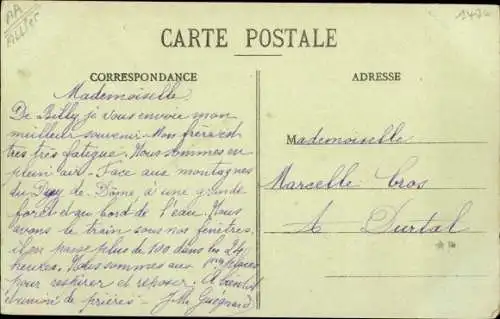 AA
Allier
1474
CARTE POSTALE
CORRESPONDANCE
ADRESSE
Mademoiselle
De Billy je vous envoie mon
meilleur souvenir. Mon frère est
très très fatigué. Nous sommes en
plein air. Face aux montagnes
du Puy de Dôme à une grande
forêt et au bord de l'eau. Nous
avons le train sous nos fenêtres,
il en passe plus de 100 dans les 24
heures. Nous sommes aux places
pour respirer et reposer. A bientôt
et union de prières - J. M. Guignard
Mademoiselle
Marcelle Cros
A Durtal